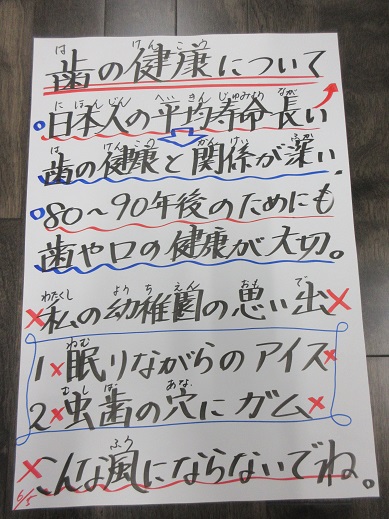 歯の健康について
日本人の平均寿命長い
歯の健康と関係が深い
80～90年後のためにも
歯や口の健康が大切。
私の幼稚園の思い出
1 眠りながらのアイス
2 虫歯の穴にガム
こんな風にならないでね。
6/5